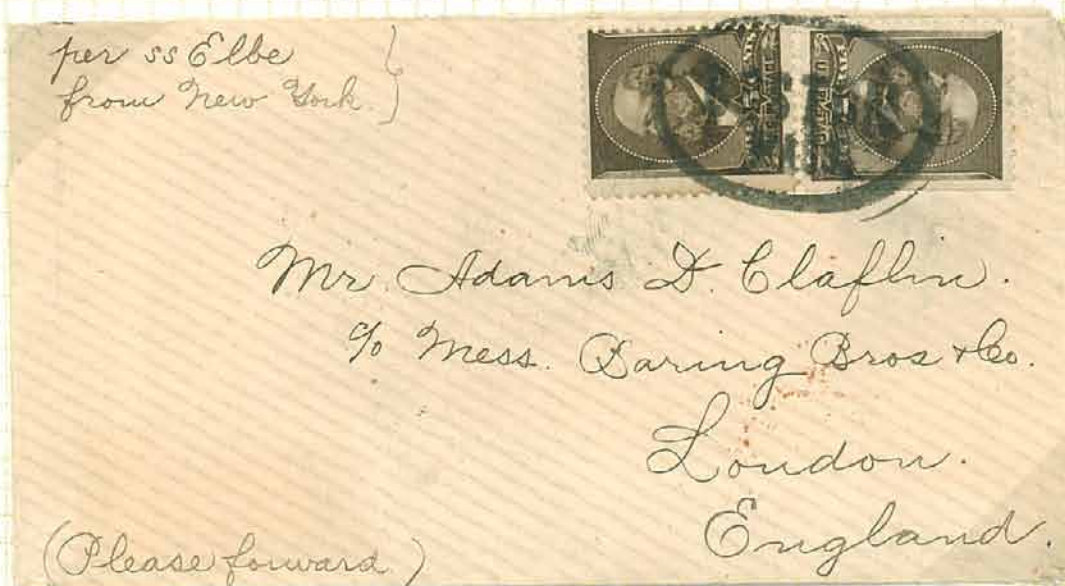 per ss Elbe
from New York
Mr. Adams D. Claflin.
c/o Mess. Baring Bros & Co.
London.
England.
(Please forward)